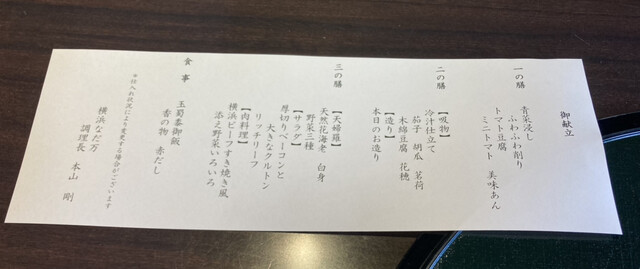 御献立
一の膳
青菜浸し
ふわふわ削り
トマト豆腐
ミニトマト 美味あん
二の膳
【吸物】
冷汁仕立て
茄子 胡瓜 茗荷
木綿豆腐 花穂
【造り】
本日のお造り
三の膳
【天婦羅】
天然花海老 白身
野菜三種
【サラダ】
厚切りベーコンと
大きなクルトン
リッチリーフ
【肉料理】
横浜ビーフすき焼き風
添え野菜いろいろ
食事
玉蜀黍御飯
香の物 赤だし
※仕入れ状況により変更する場合がございます
横浜なだ万
調理長 本山 剛